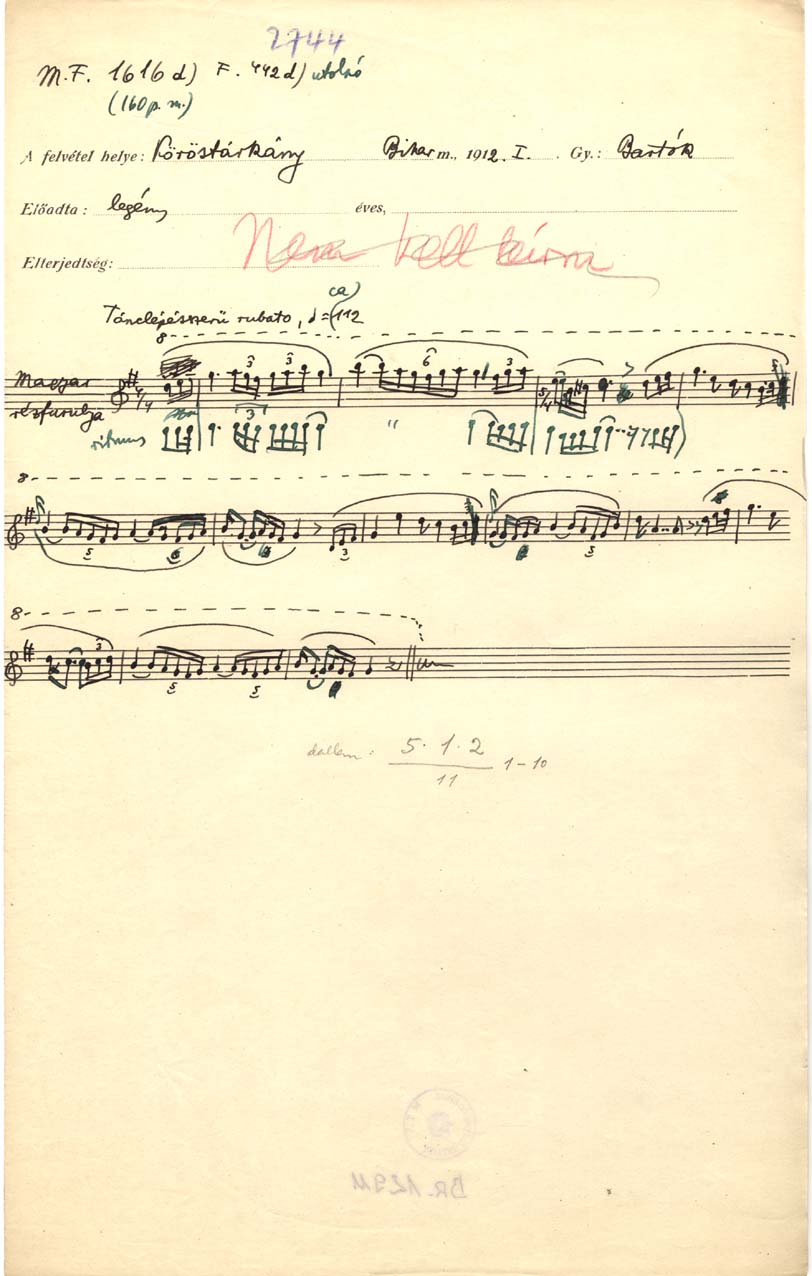 2744
M.F. 1616 d) F. 442 d) utolsó
(160 p. m.)
A felvétel helye: Köröstárkány Bihar m., 1912. I. Gy.: Bartók
Előadta: legény éves,
Elterjedtség:
Nem kell leírni
ca)
Tánclépésszerű rubato, ♩=(112
8
3 3 6 3 5
Magyar
4/4 5/4
részfurulya
ritmus
3 "
8
5 6 3 5
8
3
5 5
dallam: 5. 1. 2
11 1-10
BR. 12911